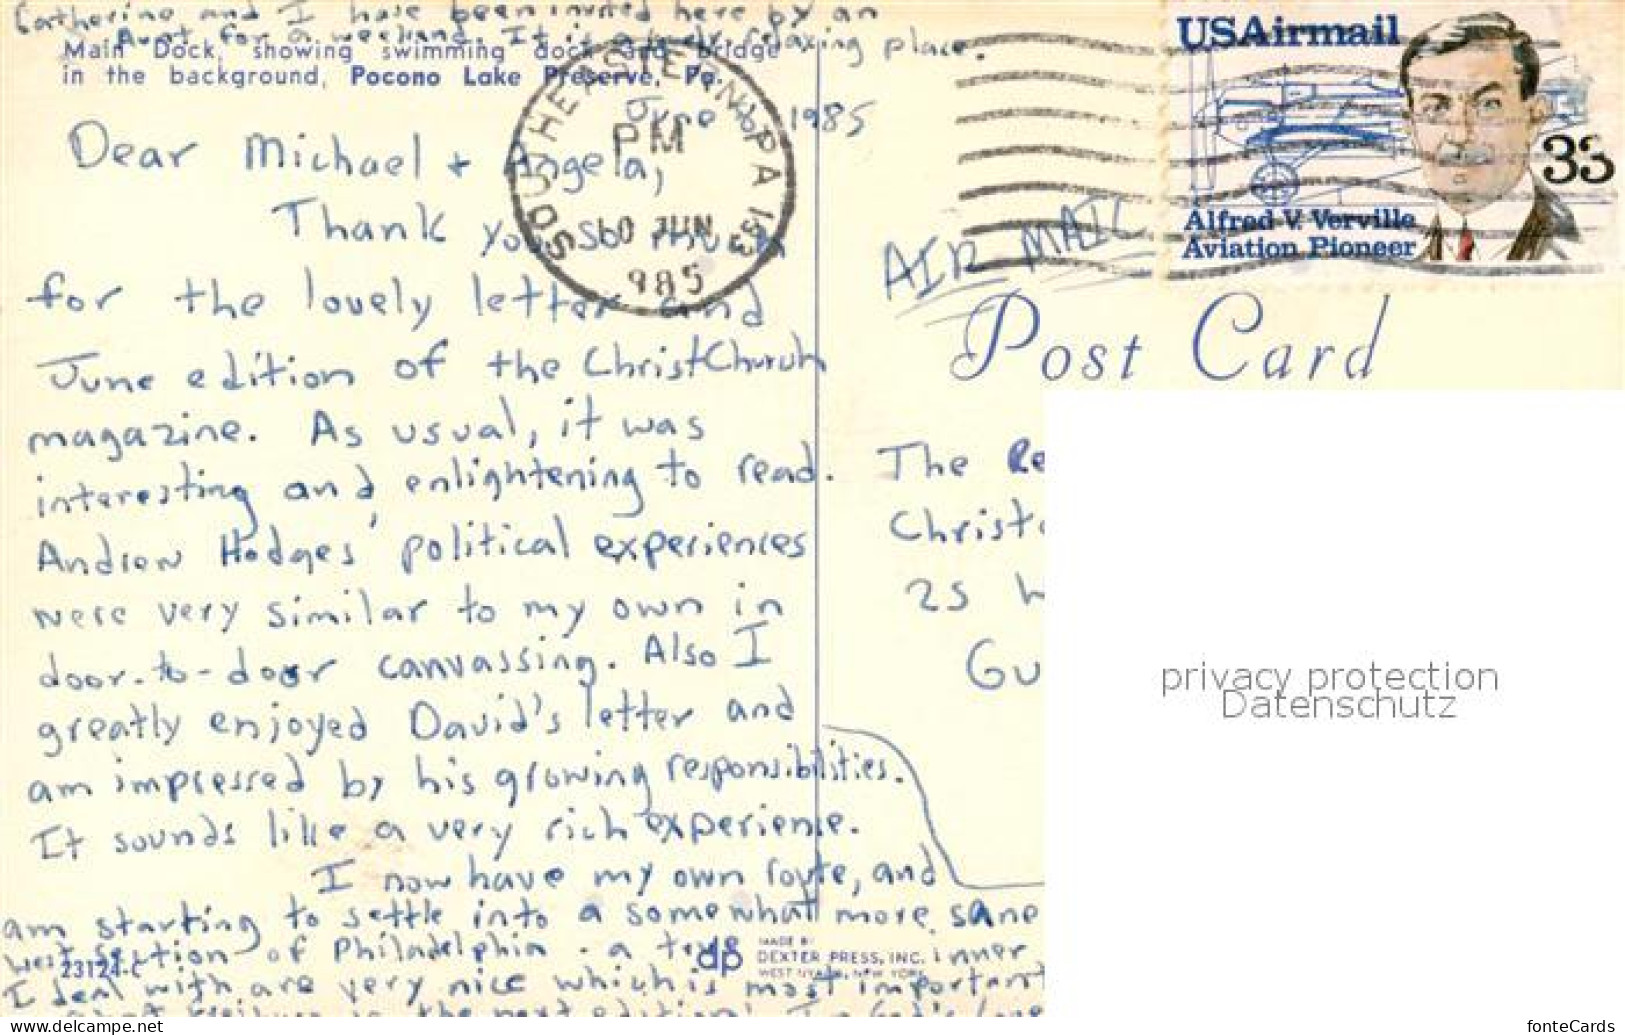 Catherine and I have been invited here by an
Aunt for a weekend. It is a very relaxing place.
Main Dock, showing swimming dock and bridge
in the background, Pocono Lake Preserve, Pa.
USAirmail
33
Alfred V. Verville
Aviation Pioneer
SOUTHEASTERN, PA 193
PM
10 JUN
985
June 1985
AIR MAIL
Post Card
Dear Michael + Angela,
Thank you so much
for the lovely letter and
June edition of the ChristChurch
magazine. As usual, it was
interesting and enlightening to read.
Andrew Hodges' political experiences
were very similar to my own in
door-to-door canvassing. Also I
greatly enjoyed David's letter and
am impressed by his growing responsibilities.
It sounds like a very rich experience.
I now have my own route, and
am starting to settle into a somewhat more sane
West section of Philadelphia - a inner
I deal with are very nice which is most important
in the next edition! In God's love
The Re
Christ
25
Gu
23124-C
dp
MADE BY
DEXTER PRESS, INC.
WEST NYACK, NEW YORK
privacy protection
Datenschutz
delcampe.net
fonteCards